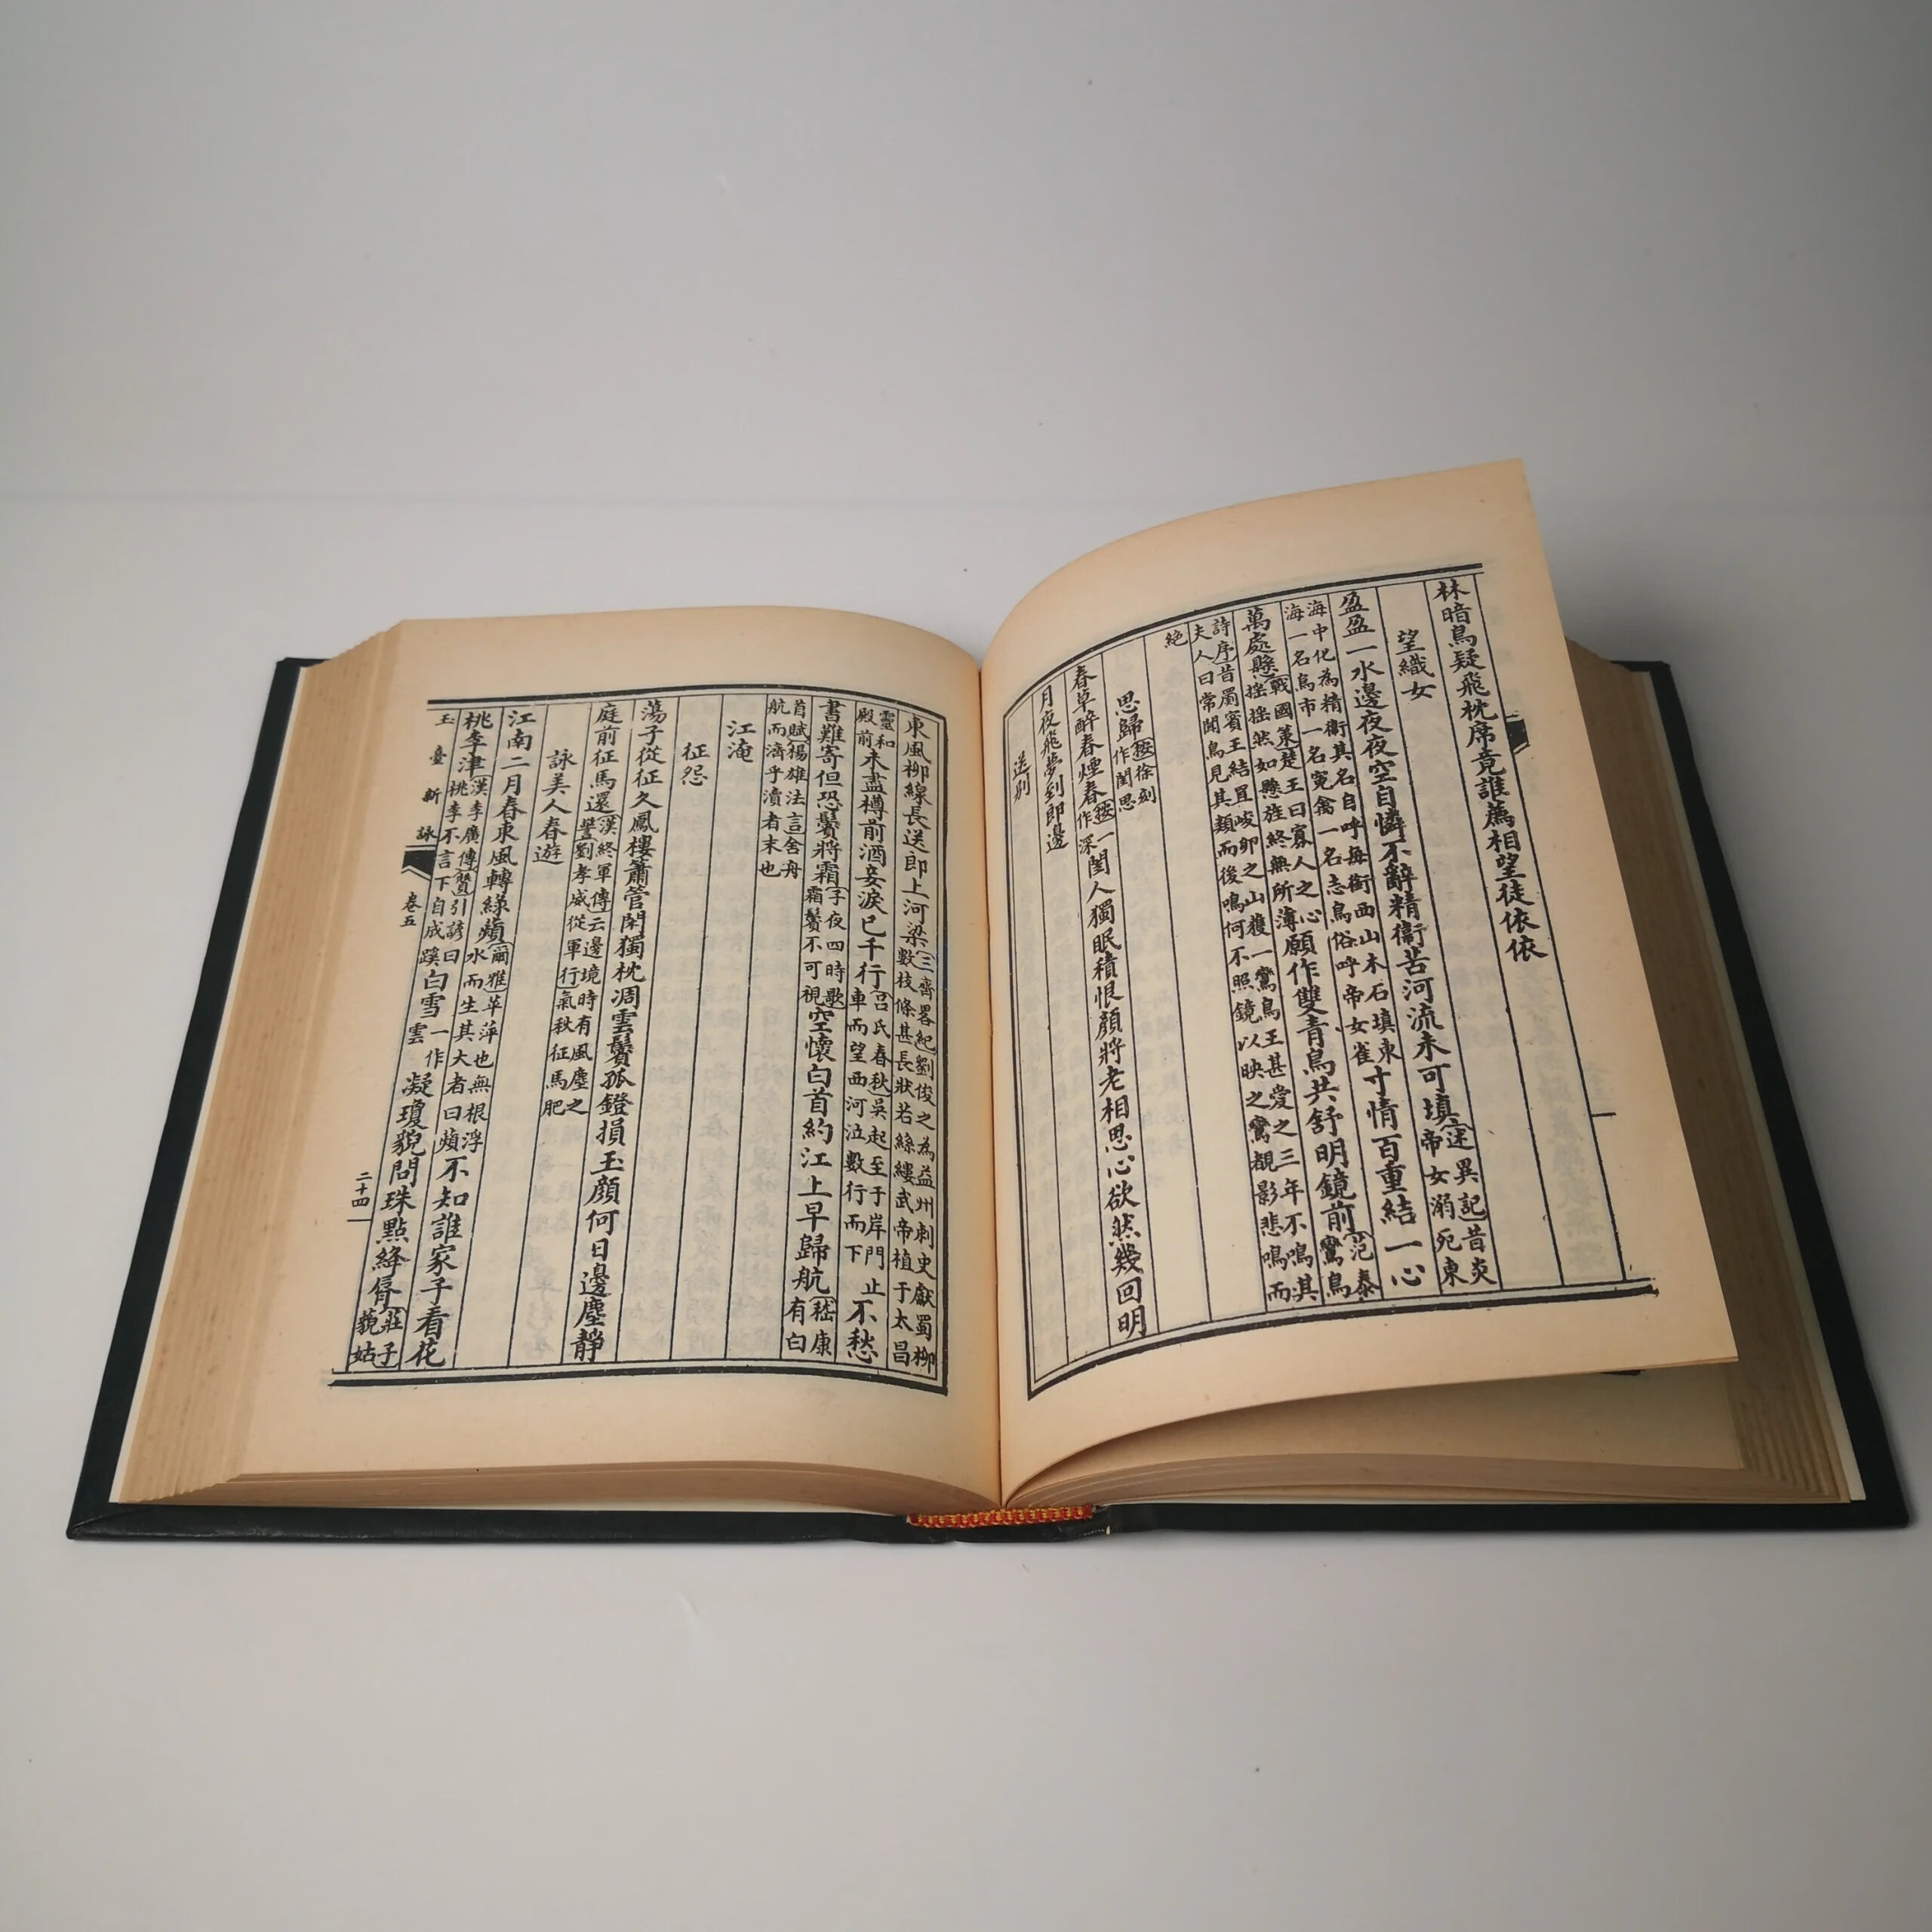 林暗鳥疑飛枕席竟誰薦相望徒依依
望織女
盈盈一水邊夜夜空自憐不辭精衞苦河流未可填述異記昔炎帝女溺死東
海中化為精衞其名自呼每銜西山木石填東海一名鳥市一名寃禽一名志鳥俗呼帝女雀寸情百重結一心
萬處懸戰國策楚王曰寡人之心搖搖然如懸旌終無所薄願作雙青鳥共舒明鏡前范泰鸞鳥
詩序昔罽賓王結罝峻卯之山獲一鸞鳥王甚愛之三年不鳴其夫人曰常聞鳥見其類而後鳴何不照鏡以映之鸞覩影悲鳴而
絶
思歸按徐刻作閨思
春草醉春煙春按一作深閨人獨眠積恨顔將老相思心欲然幾回明
月夜飛夢到郎邊
送別
東風柳線長送郎上河梁三齊畧紀劉俊之為益州刺史獻蜀柳數枝條甚長狀若絲縷武帝植于太昌
靈和殿前未盡樽前酒妾淚已千行呂氏春秋吳起至于岸門止車而望西河泣數行而下不愁
書難寄但恐鬢將霜子夜四時歌霜鬢不可視空懷白首約江上早歸航嵇康有白
首賦楊雄法言舍舟航而濟乎瀆者末也
江淹
征怨
蕩子從征久鳳樓簫管閑獨枕凋雲鬢孤鐙損玉顔何日邊塵靜
庭前征馬還漢終軍傳云邊境時有風塵之警劉孝威從軍行氣秋征馬肥
詠美人春遊
江南二月春東風轉綠蘋爾雅苹萍也無根浮水而生其大者曰蘋不知誰家子看花
桃李津漢李廣傳贊引諺曰桃李不言下自成蹊白雪一作雲凝瓊貌問珠點絳脣莊子藐姑
玉臺新詠
卷五
二十四